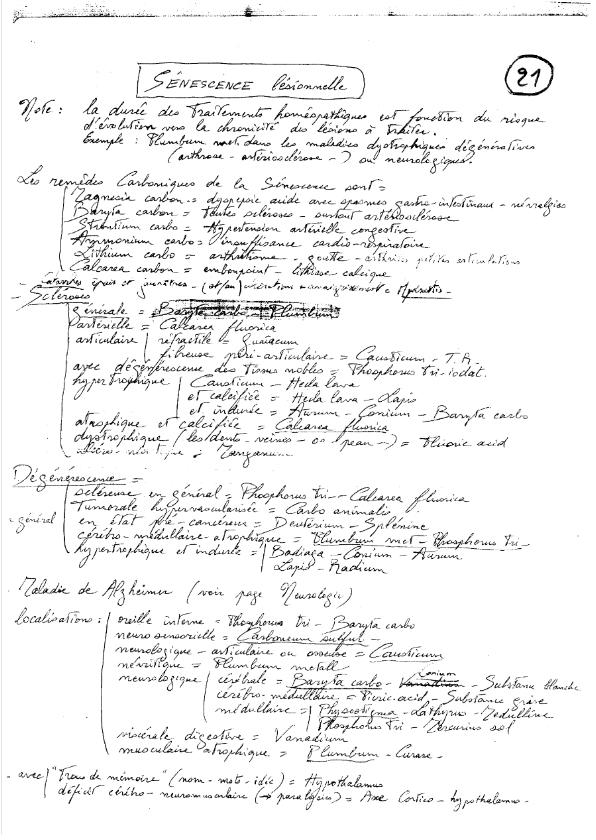 21
SÉNESCENCE lésionnelle
Note : la durée des Traitements homéopathiques est fonction du risque
d'évolution vers la chronicité des lésions à traiter.
Exemple : Plumbum met. dans les maladies dystrophiques dégénératives
(arthrose - artériosclérose - ) ou neurologiques.
Les remèdes Carboniques de la Sénescence sont =
Magnesia carbon. = dyspepsie acide avec spasmes gastro-intestinaux - névralgies
Baryta carbon = toutes scléroses - surtout artériosclérose
Strontium carbo = Hypertension artérielle congestive
Ammonium carbo = insuffisance cardio-respiratoire
Lithium carbo = arthritisme - goutte - petites articulations
Calcarea carbon = embonpoint - lithiase calcique
épais et
- Scléroses
générale = Baryta carbo - Plumbum
artérielle = Calcarea fluorica
articulaire | rétractile = Guaïacum
fibreuse péri-articulaire = Causticum - T.A.
avec dégénérescence des tissus nobles = Phosphorus tri-iodat.
hypertrophique | Causticum - Hecla lava
et calcifiée = Hecla lava - Lapis
et indurée = Aurum - Conium - Baryta carbo
atrophique et calcifiée = Calcarea fluorica
dystrophique (les dents - veines - os - peau - ) = Fluoric acid
: Manganum
Dégénérescence =
scléreuse en général = Phosphorus tri - Calcarea fluorica
- général
Tumorale hypervascularisée = Carbo animalis
en état pré-cancéreux = Deuterium - Splénine
cérébro-médullaire-atrophique = Plumbum met - Phosphorus tri-
hypertrophique et indurée = | Badiaga - Conium - Aurum
Lapis - Radium
Maladie de Alzheimer (voir page Neurologie)
Localisations : oreille interne = Phosphorus tri - Baryta carbo
neurosensorielle = Carboneum sulfur. -
neurologique - articulaire ou osseuse = Causticum
névritique = Plumbum metall
neurologique | cérébrale = Baryta carbo - Vanadium Conium - Substance blanche
cérébro-médullaire = Picric. acid - Substance grise
médullaire = | Physostigma - Lathyrus - Medulline
Phosphorus tri - Mercurius sol
viscérale digestive = Vanadium
musculaire atrophique = Plumbum - Curare -
- avec | "Trous de mémoire" (nom - mots - idée) = Hypothalamus
déficit cérébro-neuromusculaire (→ paralysies) = Axe Cortico - hypothalamus -